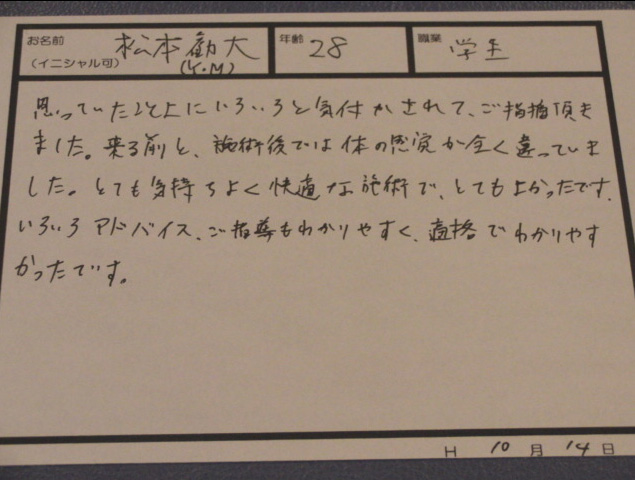 お名前 松本勧大 年齢 28 職業 学生
(イニシャル可) (Y.M)
思っていたこと以上にいろいろと気付かされて、ご指摘頂き
ました。来る前と、施術後では体の感覚が全く違っていま
した。とても気持ちよく快適な施術で、とてもよかったです。
いろいろアドバイス、ご指導もわかりやすく、適格でわかりやす
かったです。
H 10月 14日